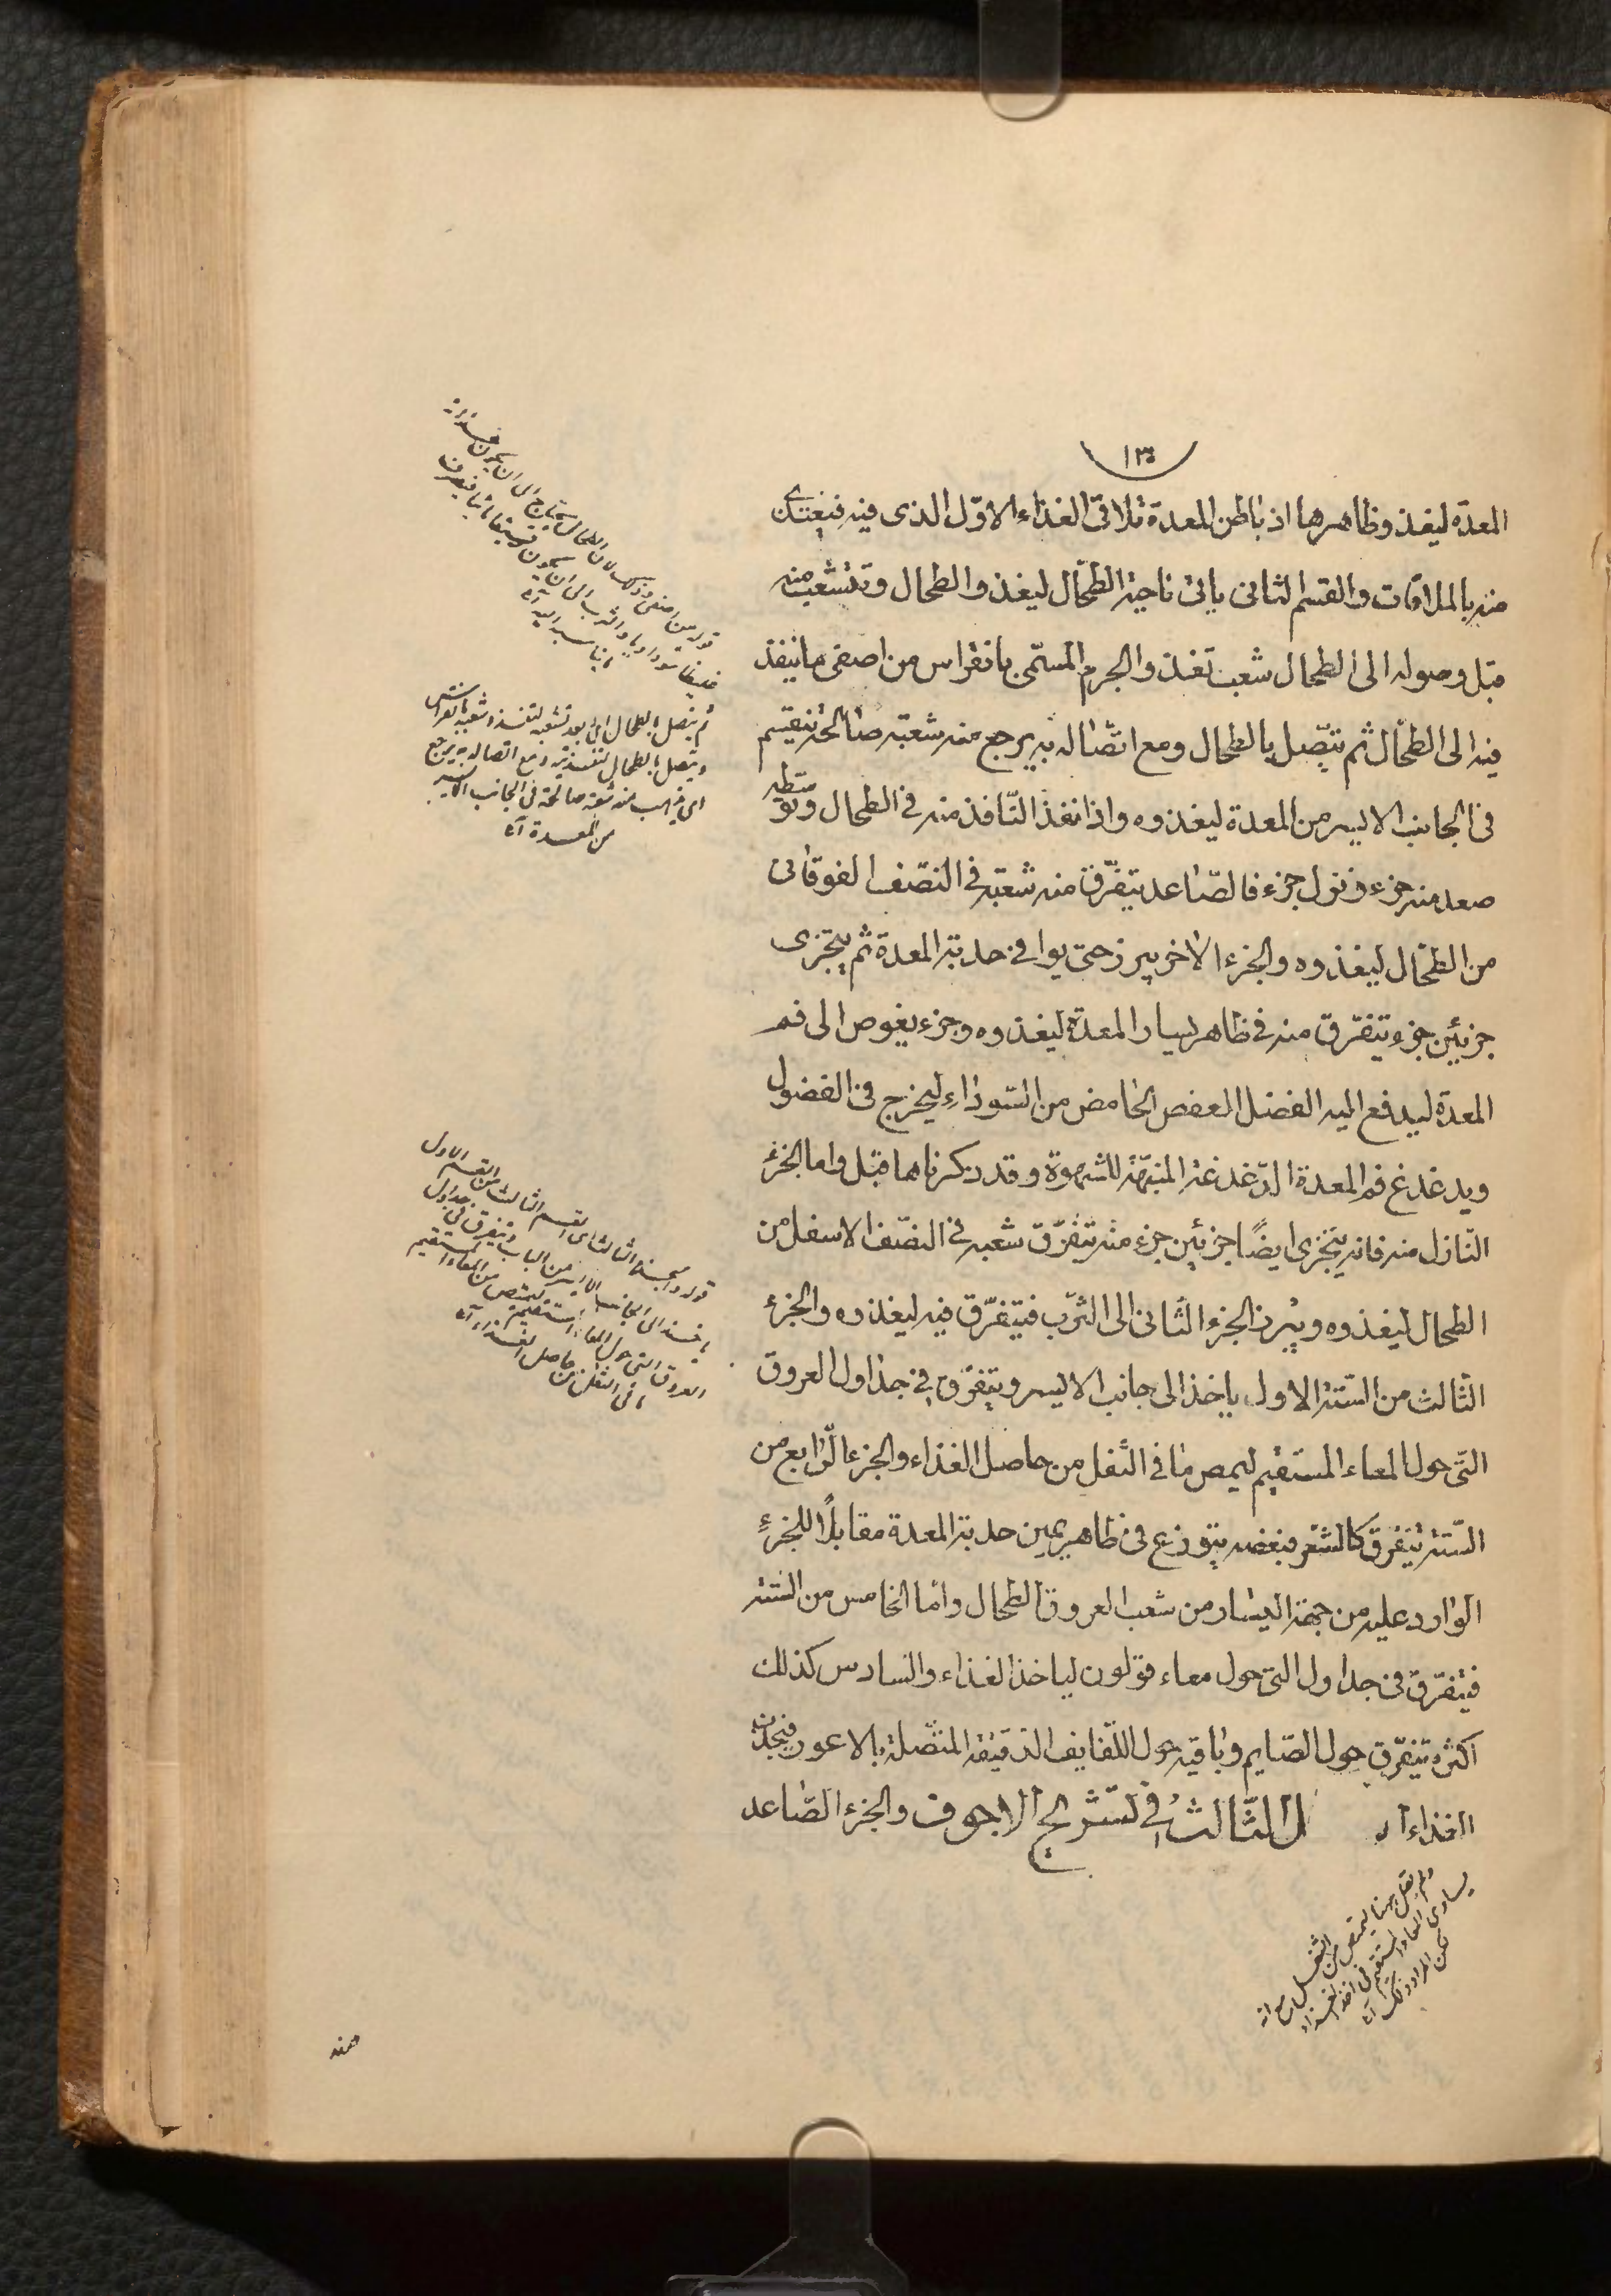 ١٣٠
المعدة ليغذو ظاهرها اذ باطن المعدة تلاقى الغذاء الاوّل الذى فيه فيغتذى
منه بالملاقات والقسم الثانى يأتى ناحية الطحال ليغذو الطحال وتتشعب منه
قبل وصوله الى الطحال شعب تغذو الجرم المسمّى بانقراس من اصفى ما ينفذ
فيه الى الطحال ثم يتّصل بالطحال ومع اتّصاله به يرجع منه شعبة صالحة تنقسم
فى الجانب الايسر من المعدة ليغذوه واذا نفذ النّافذ منه فى الطحال وتوسّطه
صعد منه جزء ونزل جزء فالصّاعد يتفرّق منه شعبة فى النصف الفوقانى
من الطحال ليغذوه والجزء الاخر يبرز حتى يوافى حدبة المعدة ثم يتجزى
جزئين جزء يتفرّق منه فى ظاهر يسار المعدة ليغذوه وجزء يغوص الى فم
المعدة ليدفع اليه الفضل العفص الحامض من السّوداء ليخرج فى الفضول
ويدغدغ فم المعدة الدّغدغة المنبّهة للشهوة وقد ذكرناهما قبل واما الجزء
النّازل منه فانه يتجزى ايضًا جزئين جزء منه يتفرّق شعبه فى النصّف الاسفل من
الطحال ليغذوه ويبرز الجزء الثانى الى الثرب فيتفرّق فيه ليغذوه والجزء
الثالث من الستّة الاول ياخذ الى جانب الايسر ويتفرّق فى جداول العروق
التى حول المعاء المستقيم ليمص ما فى الثفل من حاصل الغذاء والجزء الرّابع من
السّتة يتفرق كالشعر فبعضه يتوزع فى ظاهر يمين حدبة المعدة مقابلًا للجزءِ
الوارد عليه من جهة اليسار من شعب العروق الطحال واما الخامس من الستة
فيتفرّق فى جداول التى حول معاء قولون لياخذ الغذاء والسادس كذلك
اكثره يتفرّق حول الصّايم وباقيه حول اللفايف الدقيقة المتّصلة بالاعور فيجذب
الغذاء ل الثّالث فى تشريح الاجوف والجزء الصّاعد
ثم يتصل بالطحال اى بعد تشعبه لتغذو شعبه بانقراس
ويتصل بالطحال لتغذيته ومع اتصاله به يرجع
اى يذهب منه شعبة صالحة فى الجانب الايسر
من المعدة
قوله والجزء الثالث اى القسم الثالث من القسم الاول
ياخذ الى الجانب الايسر من الباب ويتفرق فى جداول
العروق التى حول المعاء المستقيم ليمتص من المعاء المستقيم
ما فى الثفل من حاصل الغذاء
ولم يقل هنا ليمتص من الثفل مع انه
يساوى المعاء المستقيم فى اخذ الغذاء
لكن المراد ذلك
منه